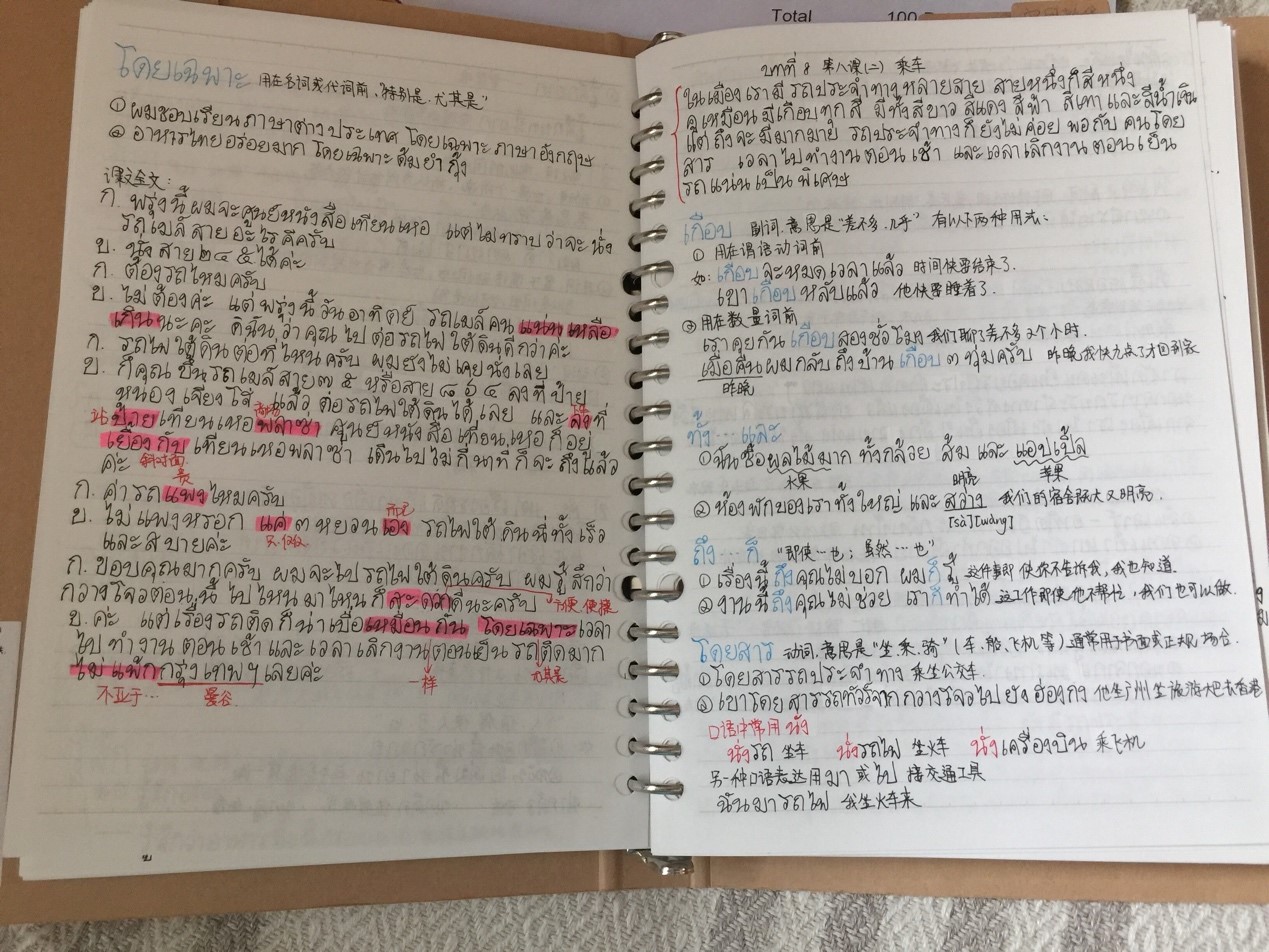 Total 100
โดยเฉพาะ 用在名词或代词前，"特别是.尤其是"
① ผมชอบเรียนภาษาต่างประเทศ โดยเฉพาะ ภาษาอังกฤษ
② อาหารไทยอร่อยมาก โดยเฉพาะ ต้มยำกุ้ง
课文全文：
ก. พรุ่งนี้ ผมจะศูนย์หนังสือ เทียนเหอ แต่ไม่ทราบว่าจะนั่ง
รถเมล์สายอะไรดีครับ
ข. นั่งสาย ๒๔๕ ได้ค่ะ
ก. ต้องรถไหมครับ
ข. ไม่ต้องค่ะ แต่พรุ่งนี้ วันอาทิตย์ รถเมล์คนแน่นเหลือ
เกินนะคะ ดิฉันว่าคุณไปต่อรถไฟใต้ดินดีกว่าค่ะ
ก. รถไฟใต้ดินต่อที่ไหนครับ ผมยังไม่เคยนั่งเลย
ข. ก็คุณขึ้นรถเมล์สาย ๗๕ หรือสาย ๘๖๔ ลงที่ป้าย
หนองเจียงโส่ แล้วต่อรถไฟใต้ดินได้เลย และลงที่
站 ป้ายเทียนเหอพลาซ่า ศูนย์หนังสือเทียนเหอก็อยู่
เยื้องกับเทียนเหอพลาซ่า เดินไปไม่กี่นาทีก็จะถึงแล้ว
ค่ะ 斜对面
贵
ก. ค่ารถแพงไหมครับ
ข. ไม่แพงหรอก แค่ ๓ หยวนเอง รถไฟใต้ดินนี่ทั้งเร็ว
และสบายค่ะ 只.仅仅
ก. ขอบคุณมากครับ ผมจะไปรถไฟใต้ดินครับ ผมรู้สึกว่า
กวางโจวตอนนี้ ไปไหนมาไหนก็สะดวกดีนะครับ 方便.便捷
ข. ค่ะ แต่เรื่องรถติดก็น่าเบื่อเหมือนกัน โดยเฉพาะเวลา
ไปทำงานตอนเช้าและเวลาเลิกงานตอนเย็นรถติดมาก
ไม่แพ้กรุงเทพฯเลยค่ะ 一样 尤其是
不亚于… 曼谷
บทที่ ๘ 第八课(二) 乘车
ในเมืองเรามีรถประจำทางหลายสาย สายหนึ่งก็สีหนึ่ง
ดูเหมือนมีเกือบทุกสี มีทั้งสีขาว สีแดง สีฟ้า สีเทา และสีน้ำเงิน
แต่ถึงจะมีมากมาย รถประจำทางก็ยังไม่ค่อยพอกับคนโดย
สาร เวลาไปทำงานตอนเช้า และเวลาเลิกงานตอนเย็น
รถแน่นเป็นพิเศษ
เกือบ 副词.意思是"差不多.几乎" 有以下两种用式：
① 用在谓语动词前
如: เกือบจะหมดเวลาแล้ว 时间快要结束了.
เขาเกือบหลับแล้ว 他快要睡着了.
② 用在数量词前
เราคุยกันเกือบสองชั่วโมง 我们聊了差不多2个小时.
เมื่อคืนผมกลับถึงบ้านเกือบ ๓ ทุ่มครับ 昨晚我快九点了才回到家
昨晚
ทั้ง…และ
① ฉันซื้อผลไม้มาก ทั้งกล้วย ส้ม และแอปเปิ้ล
水果 明亮 苹果
② ห้องพักของเราทั้งใหญ่และสว่าง 我们的宿舍既大又明亮.
[sà][wàng]
ถึง…ก็ "即使…也；虽然…也"
① เรื่องนี้ถึงคุณไม่บอก ผมก็รู้ 这件事即使你不告诉我，我也知道.
② งานนี้ถึงคุณไม่ช่วย เราก็ทำได้ 这工作即使他不帮忙，我们也可以做.
โดยสาร 动词.意思是"坐.乘.骑"(车.船.飞机等)通常用于书面或正规场合.
① โดยสารรถประจำทาง 乘坐公交车.
② เขาโดยสารรถทัวร์จากกวางโจวไปยังฮ่องกง 他坐广州坐旅游大巴去香港
口语中常用 นั่ง
นั่งรถ 坐车 นั่งรถไฟ 坐火车 นั่งเครื่องบิน 乘飞机
另一种口语表达用 มา 或 ไป 接交通工具
ฉันมารถไฟ 我坐火车来